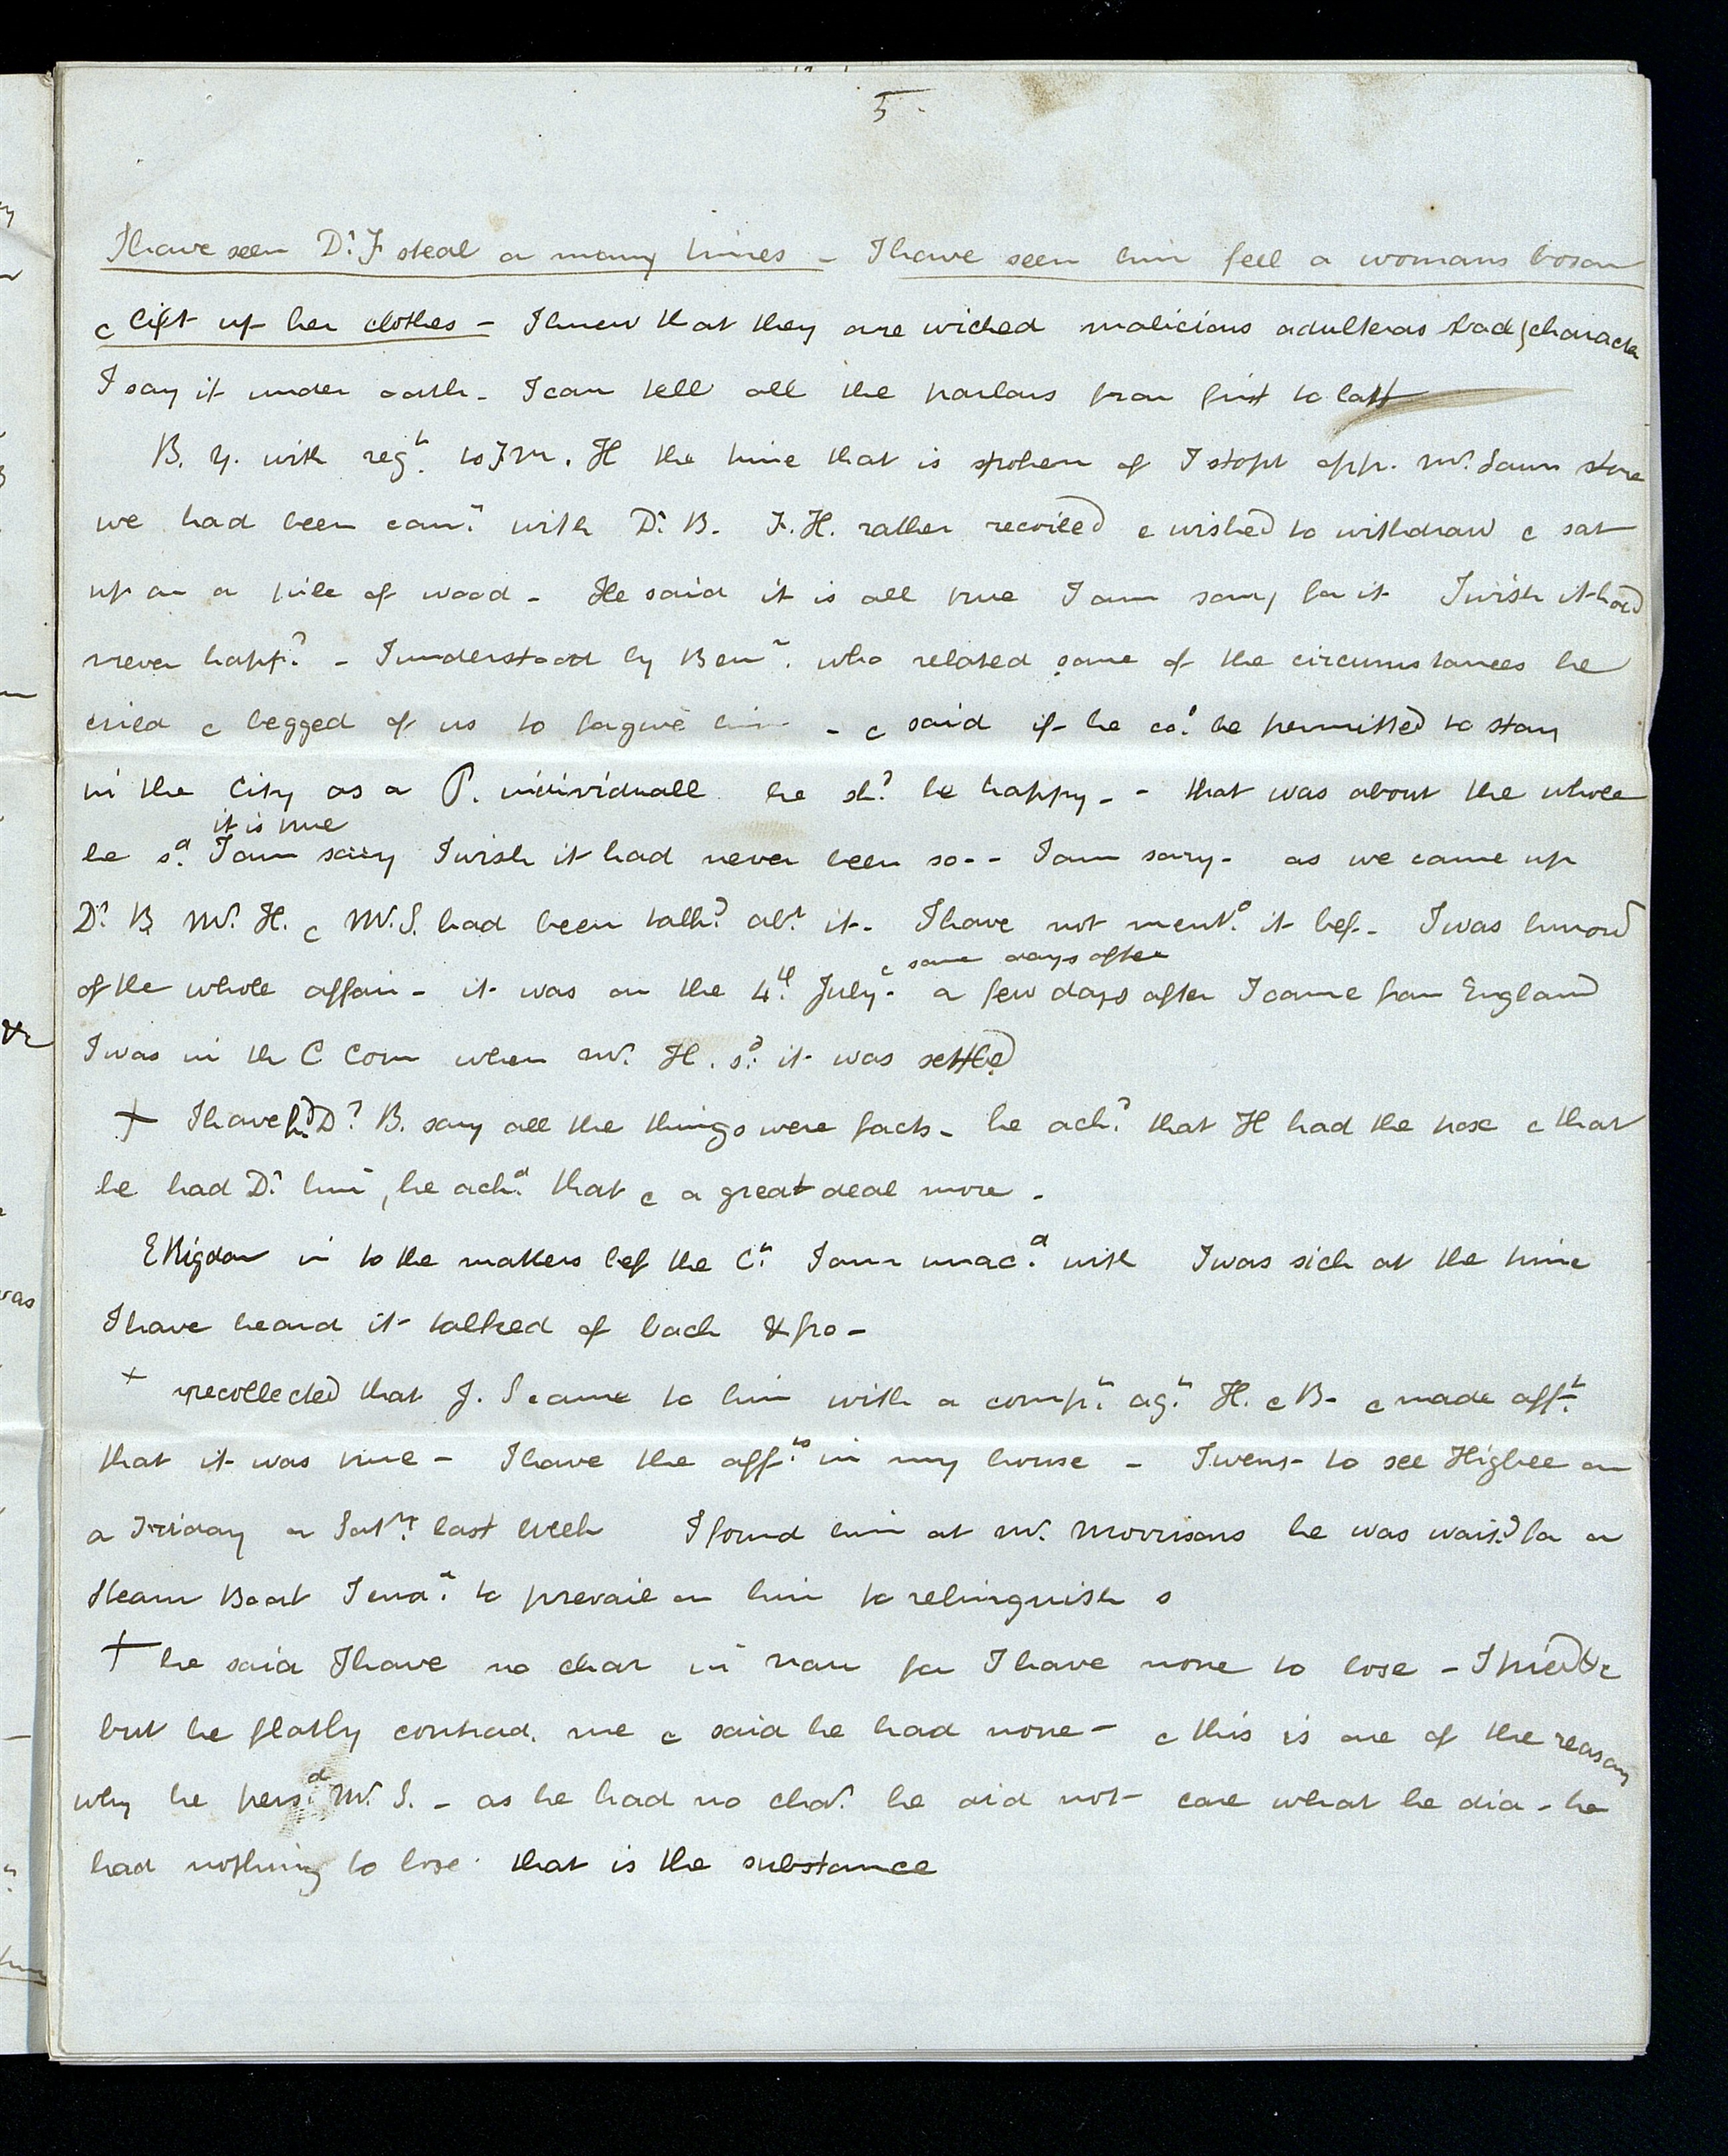 5
I have seen Dr. F steal a many times - I have seen him feel a womans bosom
& lift up her clothes - I know that they are wicked malicious adulterous bad character
I say it under oath - I can tell all the parlars from first to last
B. Y. with regt. to F M. H the time that is spoken of I stopt opp. Mr. Laws store
we had been cont. with Dr. B. F. H. rather recoiled & wished to withdraw & sat
up on a pile of wood - He said it is all true I am sorry for it I wish it had
never happd. - I understood by Bent. who related some of the circumstances he
cried & begged of us to forgive him - & said if he cod. be permitted to stay
in the City as a P. individuall he shd. be happy - - that was about the whole
it is true
he sd. I am sorry I wish it had never been so - - I am sorry - as we came up
Dr. B Mr. H. & Mr. S. had been talkg. abt. it - I have not mentd. it bef - I was knowg
of the whole affair - it was on the 4th. July - a few days after I came from England
& some days after
I was in th C Coun when Mr. H. sd. it was settled
+ I have hd Dr. B. say all the things were facts - he ackd. that H had the pox & that
he had Dd. him, he ackd. that & a great deal more -
E Rigdon in to the matters bef the Ct. I am unacd. with I was sick at the time
I have heard it talked of back & fro -
+ recollected that J. S came to him with a compt. agt. H. & B - & made afft.
that it was true - I have the affts. in my house - I went to see Higbee on
a Friday or Saty. last week I found him at Mr. Morrisons he was waitg. for a
steam Boat I endd. to prevail on him to relinquish s
+ he said I have no char in nau for I have none to lose - I tried &c
but he flatly contrad. me & said he had none - & this is one of the reason
why he persd. Mr. S. - as he had no char. he did not care what he did - he
had nothing to lose. that is the substance